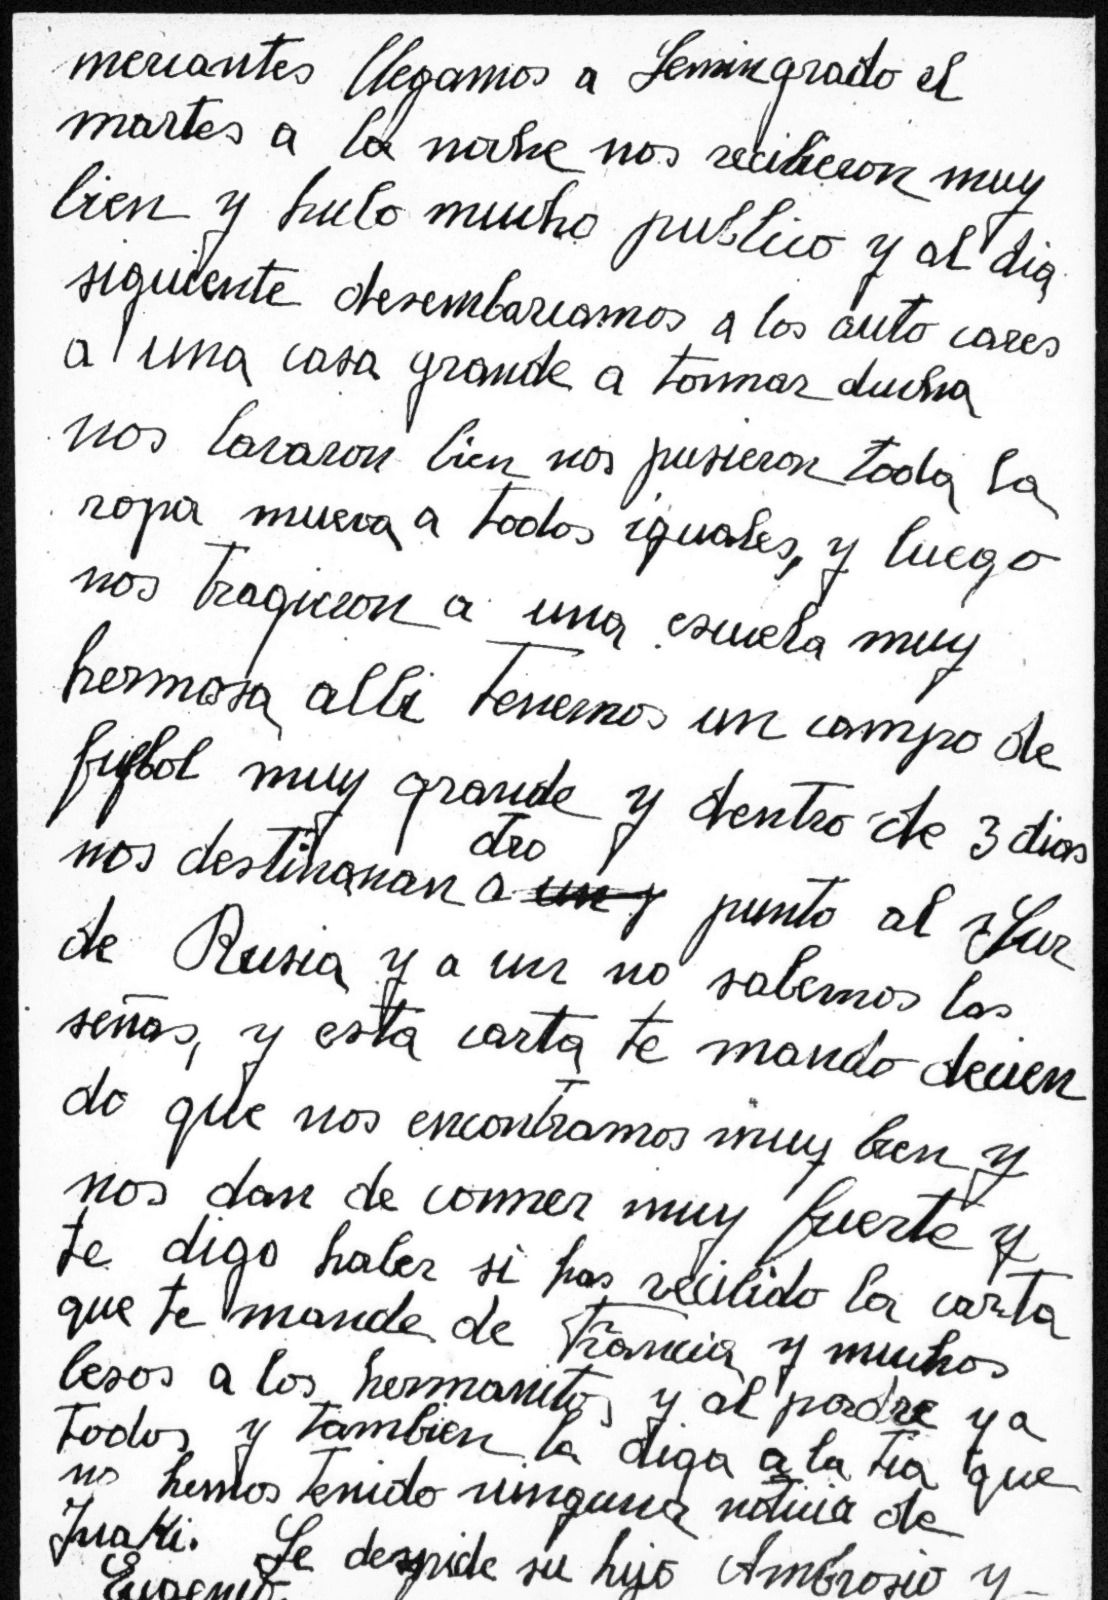 mercantes llegamos a Lemingrado el
martes a la noche nos recibieron muy
bien y hubo mucho publico y al dia
siguiente desembarcamos a los auto cares
a una casa grande a tonmar ducha
nos lavaron bien nos pusieron toda la
ropa mueva a todos iguales, y luego
nos tragieron a una escuela muy
hermosa alli tenemos un campo de
futbol muy grande y dentro de 3 dias
nos destinaran a otro punto al Sur
de Rusia y a un no sabemos las
señas, y esta carta te mando decien
do que nos encontramos muy bien y
nos dan de conmer muy fuerte y
te digo haber si has recibido la carta
que te mande de Francia y muchos
besos a los hermanitos y al padre y a
todos y tambien la diga a la tia que
no hemos tenido ninguna noticia de
Iñaki. Se despide su hijo Ambrosio y
Eugenio.